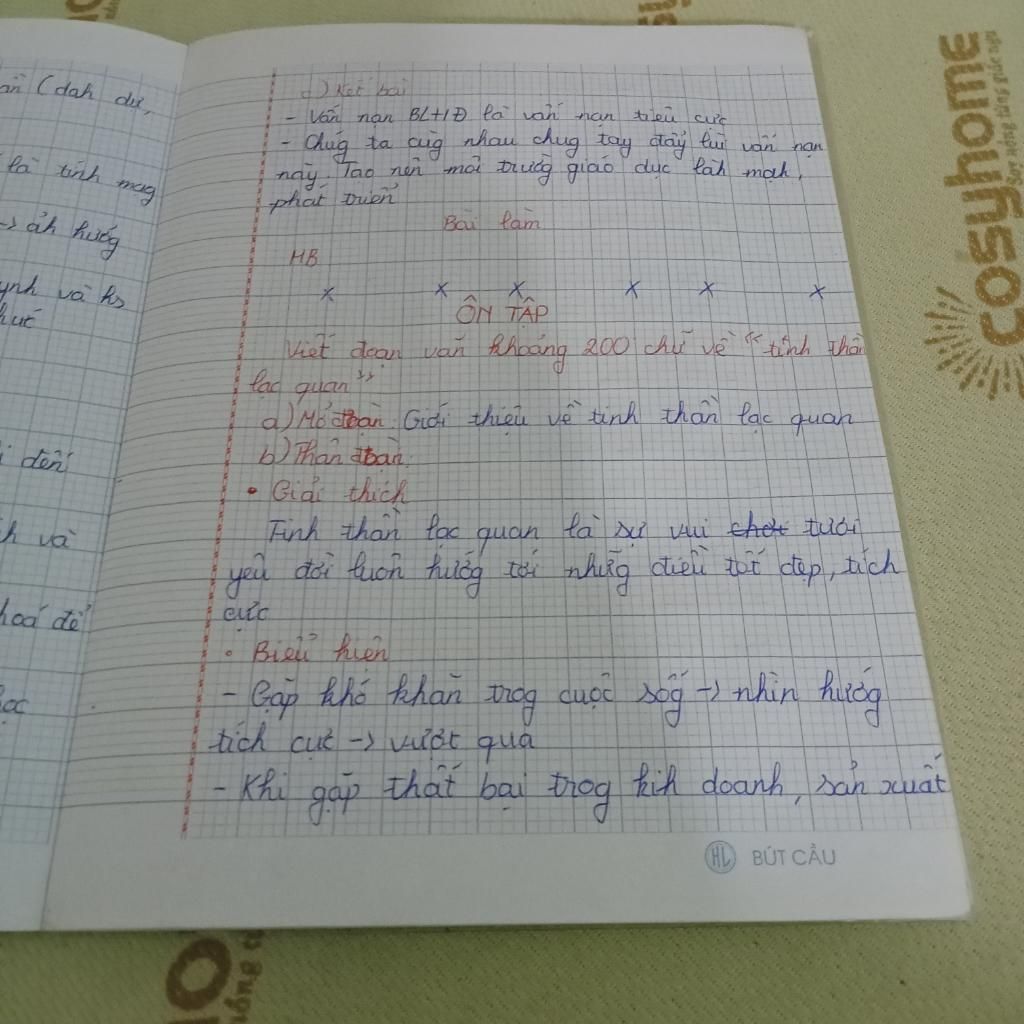 ần (dah dự,
là tính mag
-> ảh hưởg
ynh và hs
i đến
h và
hoá để
ọc
c) Kết bài
- Vấn nạn BLHĐ là vấn nạn tiêu cực
- Chúg ta cùg nhau chug tay đẩy lùi vấn nạn
này. Tạo nên môi trườg giáo dục làh mạh,
phát triển
Bài làm
HB
x x x x x x
ÔN TẬP
Viết đoạn văn khoảng 200 chữ về "tinh thần
lạc quan"
a) Mở đoàn: Giới thiệu về tinh thần lạc quan
b) Thân đoàn.
• Giải thích
Tinh thần lạc quan là sự vui chơi tươi
yêu đời luôn hướg tới nhữg điều tốt đẹp, tích
cực
• Biểu hiện
- Gặp khó khăn trog cuộc sốg -> nhìn hướg
tích cực -> vượt qua
- Khi gặp thất bại trog kih doanh, sản xuất
HL BÚT CẦU
Cosyhome